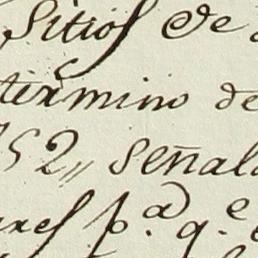 Sitios de
termino de
52,, señala
res p.a q.e